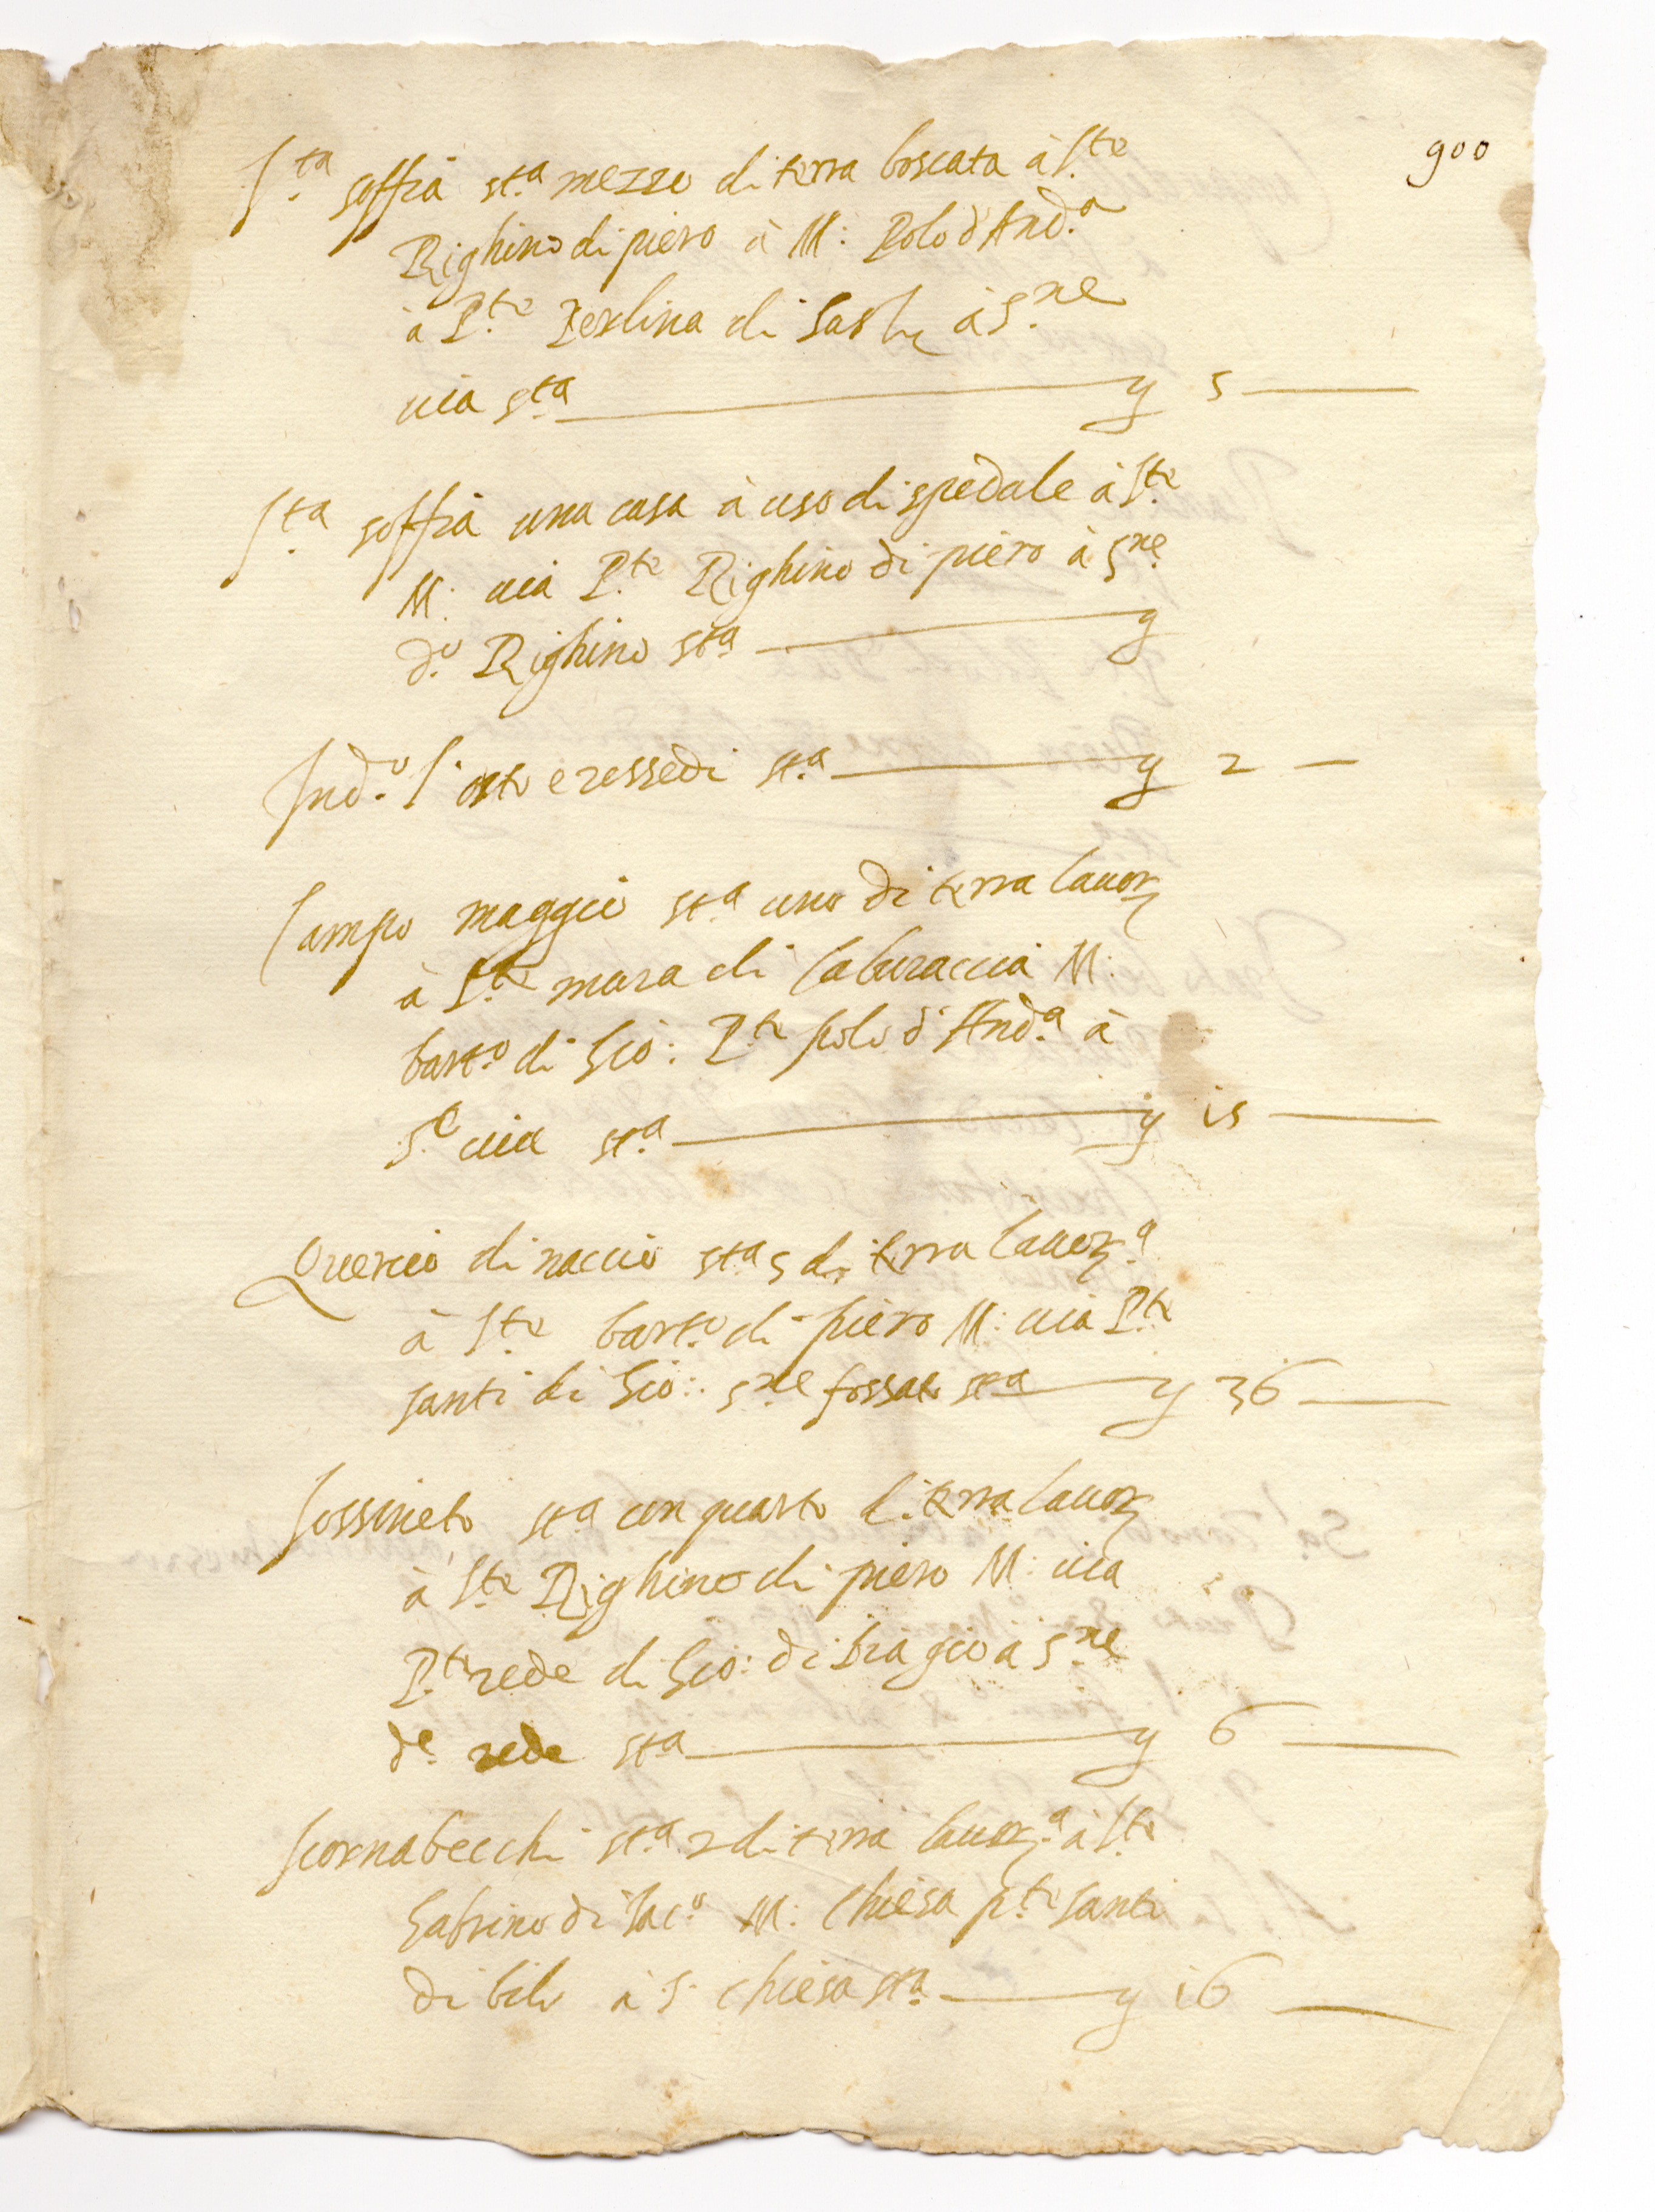 900
S.ta soffia st.a mezzo di terra boscata à S.te
Righino di piero à M: Polo d'And.a
à P.te Perlina di à S.ne
via st.a y 5
S.ta soffia una casa à uso di spedale à S.te
M: via P.te Righino di piero à S.ne
d.o Righino st.a y
Ind.o l'orto e ressedi st.a y 2
Campo maggio st.a uno di terra lavor
à S.te mara di M:
bart.o di Gio: P.te polo d'And.a à
S.e via st.a y 15
Quercio di naccio st.a 5 di terra lavor.a
à S.te bart.o di piero M: via P.te
santi di Gio: S.ne fossato st.a y 36
st.a un quarto di terra lavor
à S.te Righino di piero M: via
P.te rede di Gio: di biagio à S.ne
d.e rede st.a y 6
Scornabecchi st.a 2 di terra lavor.a à S.te
di Jac.o M: chiesa p.te santi
di à S. chiesa st.a y 16